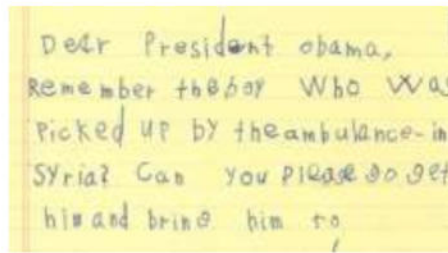 Dear President obama,
Remember the boy Who was
Picked up by the ambulance-in
Syria? Can you please go get
him and bring him to